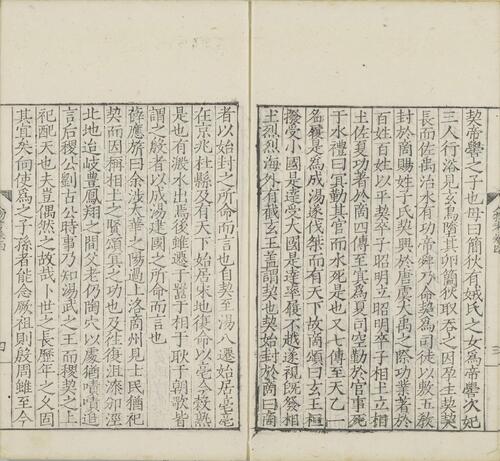 契帝嚳之子也母曰簡狄有娀氏之女爲帝嚳次妃
三人行浴見玄鳥墮其卵簡狄取吞之因孕生契契
長而佐禹治水有功帝舜乃命契爲司徒以敷五教
封於商賜姓子氏契興於唐虞大禹之際功業著於
百姓百姓以平契卒子昭明立昭明卒子相土立相
土佐夏功著於商四傳至宜爲夏司空勤於官事死
于水禮曰宜勤其官而水死是也又七傳至天乙一
名履是爲成湯遂伐桀而有天下故商頌曰玄王桓
撥受小國是達受大國是達率履不越遂視旣發相
土烈烈海外有截玄王蓋謂契也契始封於商曰商
者以始封之所命而言也自契至湯八遷始居亳亳
在京兆杜縣及有天下始居宋地復命以亳今榖熟
是也有溵水出焉後雖遷于囂于相于耿子朝歌皆
謂之殷者以成湯建國之所命而言也
薛應旂曰余渉渭華之陽過上洛商州見士民猶祀
契而因稱相土之賢頌宜之功也及往復沮漆邠涇
此地迨岐豊鳳翔之間父老仍陶穴以處嘖嘖道
言后稷公劉古公時事乃知湯武之王而稷契之上
祀配天也夫豈偶然之故哉卜世之長歷年之乆固
其宜矣向使爲之子孫者能念厥祖則殷周雖至今